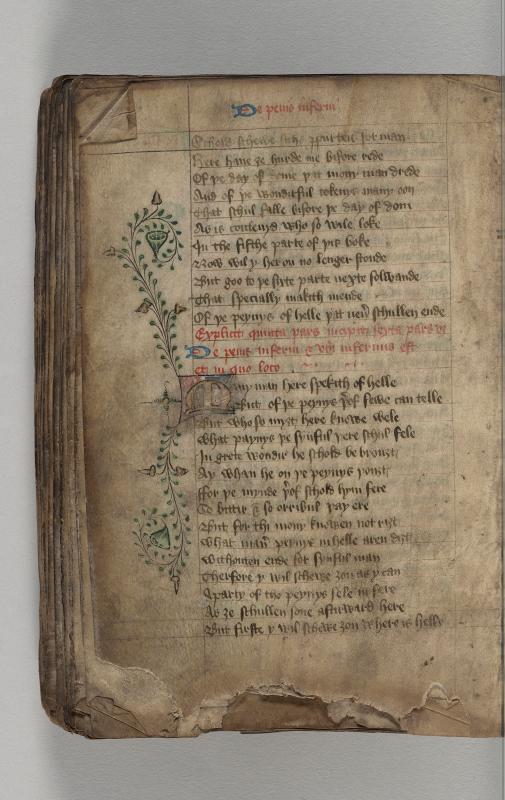 De penis inferni
Schold schewe suche jot man
Here haue ȝe hurde me bifore rede
Of þe day of dome þat mony man drede
And of þe wondirful tokenys many oon
That schul falle bifore þe day of dom
As is conteyned who so wile loke
In the fifthe parte of þis boke
Now wil y her on no lenger stonde
But goo to þe sixte parte nexte folwande
That specially makith mende
Of þe peynys of helle þat neuer schullen ende
Explicit quinta pars incipit sexta pars
De penis inferni & vbi infernus est
et in quo loco
Many man here spekith of helle
But of þe peynys þrof fewe can telle
But who so myȝt here knowe wele
What paynys þe synful þere schul fele
In grete wondir he schold be brouȝt
Ay whan he on þe peynys þouȝt
ffor þe mynde þrof schold hym fere
So bittir & so orribul þay ere
But for thi mony knowen not riȝt
What maner peynys in helle aren diȝt
Withouten ende for synful man
Therfore y wil schewe ȝou as y can
A party of tho peynys sele in fere
As ȝe schullen sone aftirward here
But firste y wil schewe ȝou where is helle